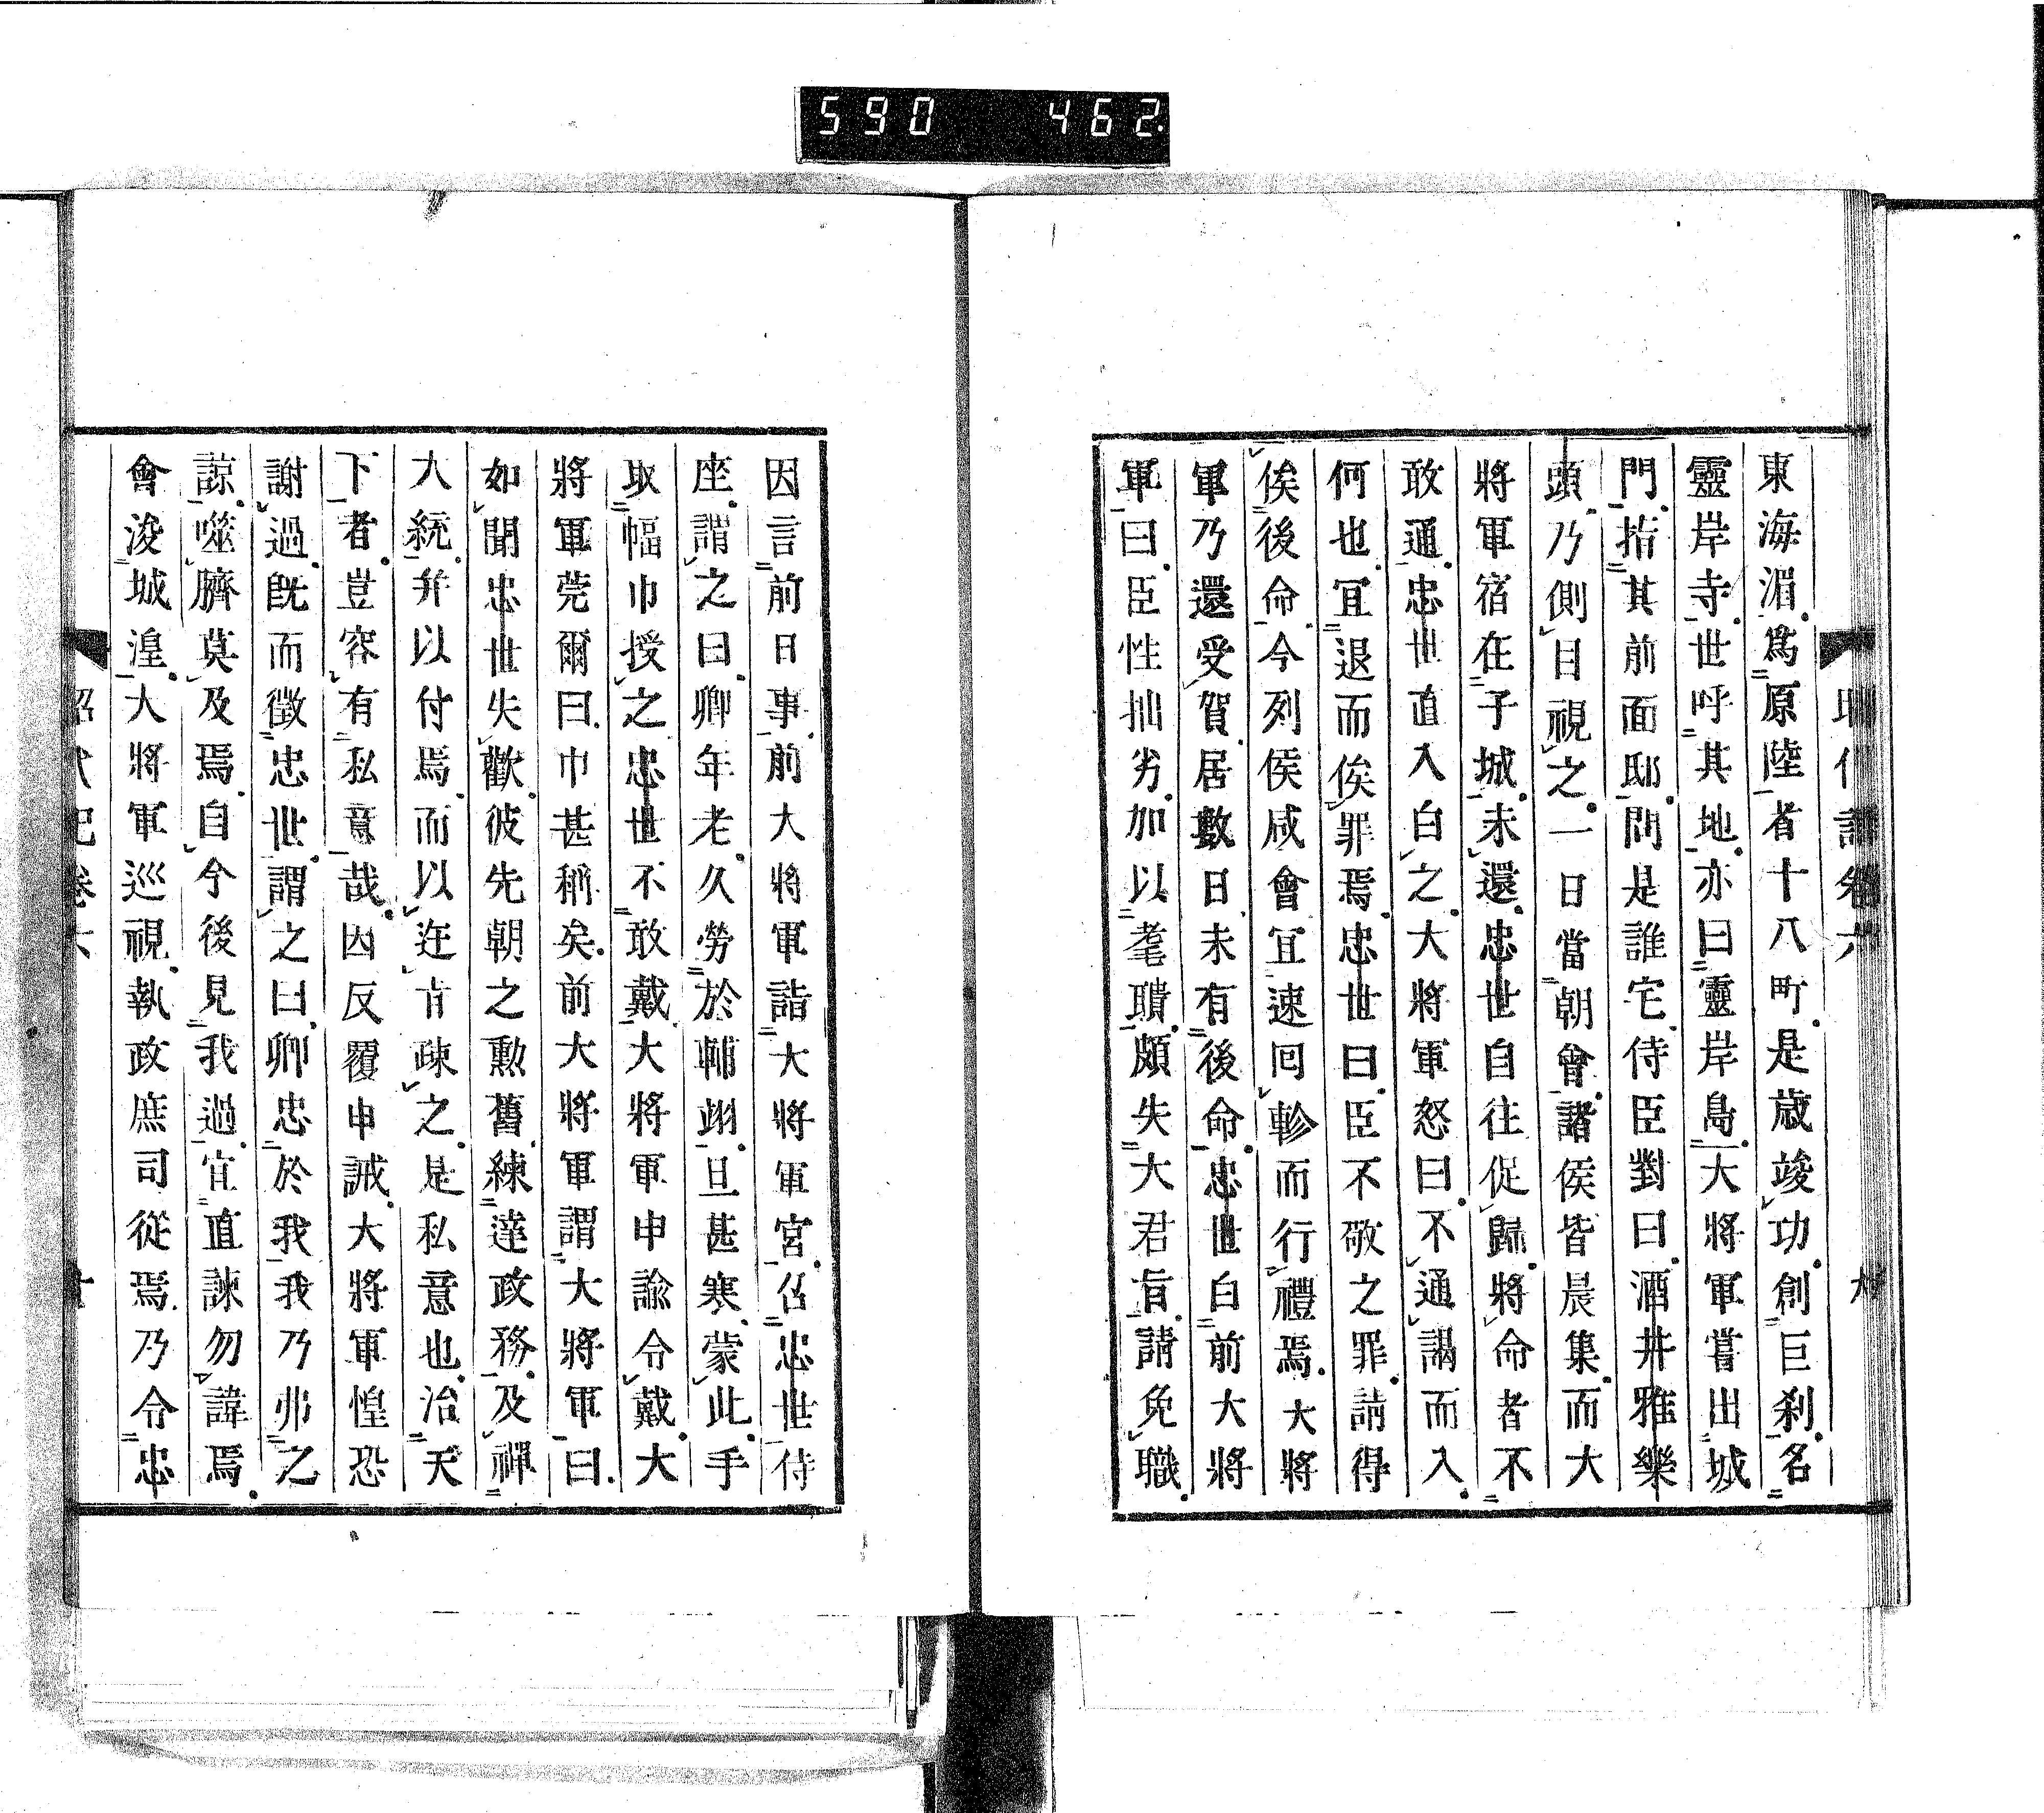 590 462
昭代記卷六 九
東海湄爲原陸者十八町是歳竣功創巨刹名
靈岸寺世呼其地亦曰靈岸島大將軍嘗出城
門指其前面邸問是誰宅侍臣對曰酒井雅樂
頭乃側目視之一日當朝會諸侯皆晨集而大
將軍宿在子城未還忠世自往促歸將命者不
敢通忠世直入白之大將軍怒曰不通謁而入
何也宜退而俟罪焉忠世曰臣不敬之罪請得
俟後命今列侯咸會宜速囘軫而行禮焉大將
軍乃還受賀居數日未有後命忠世白前大將
軍曰臣性拙劣加以耄聵頗失大君旨請免職
因言前日事前大將軍詣大將軍宮召忠世侍
座謂之曰卿年老久勞於輔翊旦甚寒蒙此手
取幅巾授之忠世不敢戴大將軍申諭令戴大
將軍莞爾曰巾甚稱矣前大將軍謂大將軍曰
如聞忠世失歡彼先朝之勳舊練達政務及禪
大統并以付焉而以迕旨疎之是私意也治天
下者豈容有私意哉因反覆申誡大將軍惶恐
謝過既而徵忠世謂之曰卿忠於我我乃弗之
諒噬臍莫及焉自今後見我過宜直諫勿諱焉
會浚城湟大將軍巡視執政庶司從焉乃令忠
昭代記卷六